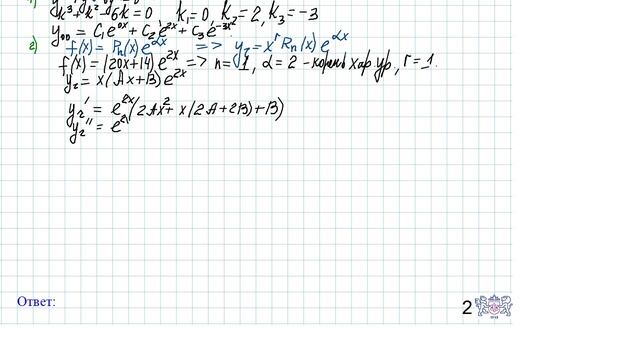 k³ + k² - 6k = 0 k₁ = 0, k₂ = 2, k₃ = -3
y₀₀ = C₁e^0x + C₂e^2x + C₃e^-3x
2) f(x) = Pₙ(x)e^αx => yᵣ = x^r Rₙ(x)e^αx
f(x) = (20x+14)e^2x => n = 1, α = 2 - корень хар. ур., r = 1.
yᵣ = x(Ax+B)e^2x
yᵣ' = e^2x(2Ax² + x(2A+2B)+B)
yᵣ'' = e^2
Ответ:
2